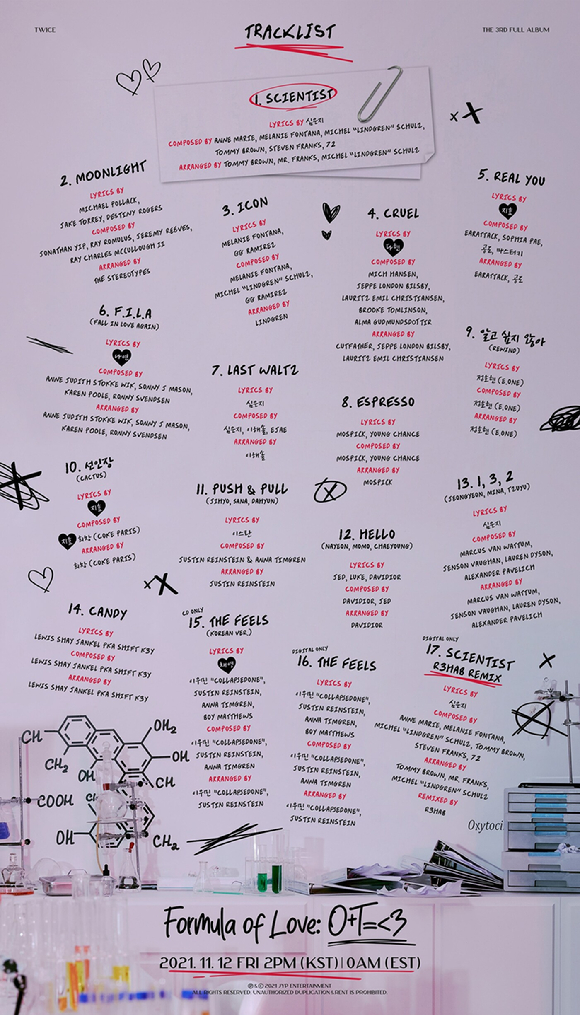 TWICE
TRACKLIST
THE 3RD FULL ALBUM
1. SCIENTIST
LYRICS BY 심은지
COMPOSED BY ANNE MARIE, MELANIE FONTANA, MICHEL "LINDGREN" SCHULZ,
TOMMY BROWN, STEVEN FRANKS, 72
ARRANGED BY TOMMY BROWN, MR. FRANKS, MICHEL "LINDGREN" SCHULZ
2. MOONLIGHT
LYRICS BY
MICHAEL POLLACK,
JAKE TORREY, DESTINY ROGERS
COMPOSED BY
JONATHAN YIP, RAY ROMULUS, JEREMY REEVES,
RAY CHARLES MCCULLOUGH II
ARRANGED BY
THE STEREOTYPES
3. ICON
LYRICS BY
MELANIE FONTANA,
GG RAMIREZ
COMPOSED BY
MELANIE FONTANA,
MICHEL "LINDGREN" SCHULZ,
GG RAMIREZ
ARRANGED BY
LINDGREN
4. CRUEL
LYRICS BY
다현
COMPOSED BY
MICH HANSEN,
JEPPE LONDON BILSBY,
LAURITZ EMIL CHRISTIANSEN,
BROOKE TOMLINSON,
ALMA GUDMUNDSDOTTIR
ARRANGED BY
CUTFATHER, JEPPE LONDON BILSBY,
LAURITZ EMIL CHRISTIANSEN
5. REAL YOU
LYRICS BY
지효
COMPOSED BY
EARATTACK, SOPHIA PAE,
공도, 마스터키
ARRANGED BY
EARATTACK, 공도
6. F.I.L.A
(FALL IN LOVE AGAIN)
LYRICS BY
나연
COMPOSED BY
ANNE JUDITH STOKKE WIK, SONNY J MASON,
KAREN POOLE, RONNY SVENDSEN
ARRANGED BY
ANNE JUDITH STOKKE WIK, SONNY J MASON,
KAREN POOLE, RONNY SVENDSEN
7. LAST WALTZ
LYRICS BY
심은지
COMPOSED BY
심은지, 이해솔, EJAE
ARRANGED BY
이해솔
8. ESPRESSO
LYRICS BY
MOSPICK, YOUNG CHANCE
COMPOSED BY
MOSPICK, YOUNG CHANCE
ARRANGED BY
MOSPICK
9. 알고 싶지 않아
(REWIND)
LYRICS BY
정호현 (E.ONE)
COMPOSED BY
정호현 (E.ONE)
ARRANGED BY
정호현 (E.ONE)
10. 선인장
(CACTUS)
LYRICS BY
지효
COMPOSED BY
지효 최한 (COKE PARIS)
ARRANGED BY
최한 (COKE PARIS)
11. PUSH & PULL
(JIHYO, SANA, DAHYUN)
LYRICS BY
이스란
COMPOSED BY
JUSTIN REINSTEIN & ANNA TIMGREN
ARRANGED BY
JUSTIN REINSTEIN
12. HELLO
(NAYEON, MOMO, CHAEYOUNG)
LYRICS BY
JED, LUKE, DAVIDIOR
COMPOSED BY
DAVIDIOR, JED
ARRANGED BY
DAVIDIOR
13. 1, 3, 2
(JEONGYEON, MINA, TZUYU)
LYRICS BY
심은지
COMPOSED BY
MARCUS VAN WATTUM,
JENSON VAUGHAN, LAUREN DYSON,
ALEXANDER PAVELICH
ARRANGED BY
MARCUS VAN WATTUM,
JENSON VAUGHAN, LAUREN DYSON,
ALEXANDER PAVELICH
14. CANDY
LYRICS BY
LEWIS SHAY JANKEL PKA SHIFT K3Y
COMPOSED BY
LEWIS SHAY JANKEL PKA SHIFT K3Y
ARRANGED BY
LEWIS SHAY JANKEL PKA SHIFT K3Y
CD ONLY
15. THE FEELS
(KOREAN VER.)
LYRICS BY
이우민 "COLLAPSEDONE",
JUSTIN REINSTEIN,
ANNA TIMGREN,
BOY MATTHEWS
COMPOSED BY
이우민 "COLLAPSEDONE",
JUSTIN REINSTEIN,
ANNA TIMGREN
ARRANGED BY
이우민 "COLLAPSEDONE",
JUSTIN REINSTEIN
DIGITAL ONLY
16. THE FEELS
LYRICS BY
이우민 "COLLAPSEDONE",
JUSTIN REINSTEIN,
ANNA TIMGREN,
BOY MATTHEWS
COMPOSED BY
이우민 "COLLAPSEDONE",
JUSTIN REINSTEIN,
ANNA TIMGREN
ARRANGED BY
이우민 "COLLAPSEDONE",
JUSTIN REINSTEIN
DIGITAL ONLY
17. SCIENTIST
R3HAB REMIX
LYRICS BY
심은지
COMPOSED BY
ANNE MARIE, MELANIE FONTANA,
MICHEL "LINDGREN" SCHULZ, TOMMY BROWN,
STEVEN FRANKS, 72
ARRANGED BY
TOMMY BROWN, MR. FRANKS,
MICHEL "LINDGREN" SCHULZ
REMIXED BY
R3HAB
CH
OH₂
CH₂
OH
OH
COOH
OH
CH₂
Oxytoci
Formula of Love: O+T=<3
2021. 11. 12 FRI 2PM (KST) | 0AM (EST)
℗& © 2021 JYP ENTERTAINMENT
ALL RIGHTS RESERVED. UNAUTHORIZED DUPLICATION & RENT IS PROHIBITED